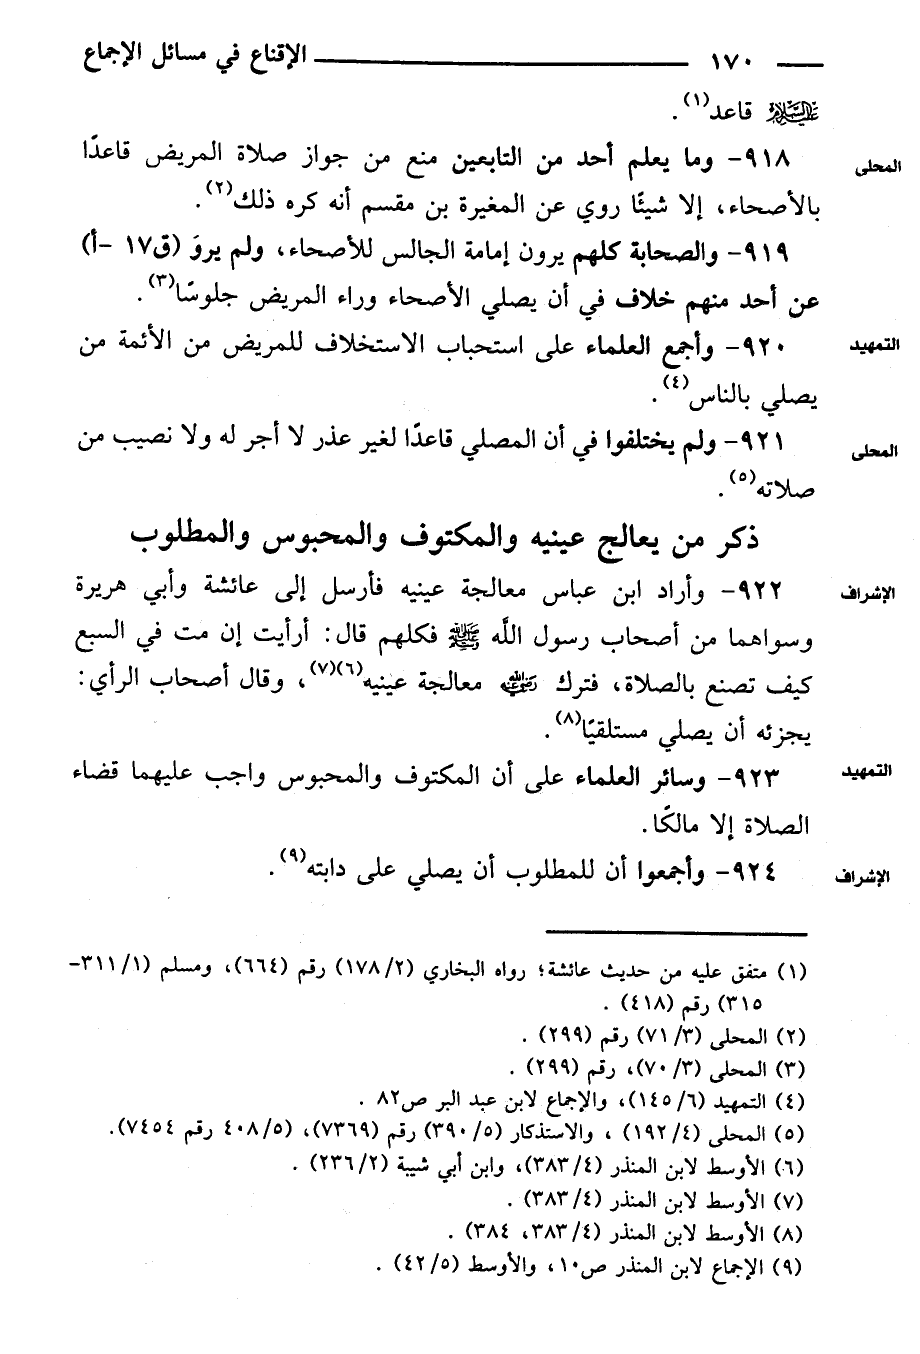 ١٧٠ الإقناع في مسائل الإجماع
عليه السلام قاعد(١).
المحلى ٩١٨- وما يعلم أحد من التابعين منع من جواز صلاة المريض قاعدًا
بالأصحاء، إلا شيئًا روي عن المغيرة بن مقسم أنه كره ذلك(٢).
٩١٩- والصحابة كلهم يرون إمامة الجالس للأصحاء، ولم يروَ (ق١٧ -أ)
عن أحد منهم خلاف في أن يصلي الأصحاء وراء المريض جلوسًا(٣).
التمهيد ٩٢٠- وأجمع العلماء على استحباب الاستخلاف للمريض من الأئمة من
يصلي بالناس(٤).
المحلى ٩٢١- ولم يختلفوا في أن المصلي قاعدًا لغير عذر لا أجر له ولا نصيب من
صلاته(٥).
ذكر من يعالج عينيه والمكتوف والمحبوس والمطلوب
الإشراف ٩٢٢- وأراد ابن عباس معالجة عينيه فأرسل إلى عائشة وأبي هريرة
وسواهما من أصحاب رسول اللَّه ﷺ فكلهم قال: أرأيت إن مت في السبع
كيف تصنع بالصلاة، فترك رضي الله عنه معالجة عينيه(٦)(٧)، وقال أصحاب الرأي:
يجزئه أن يصلي مستلقيًا(٨).
التمهيد ٩٢٣- وسائر العلماء على أن المكتوف والمحبوس واجب عليهما قضاء
الصلاة إلا مالكًا.
الإشراف ٩٢٤- وأجمعوا أن للمطلوب أن يصلي على دابته(٩).
(١) متفق عليه من حديث عائشة؛ رواه البخاري (٢/ ١٧٨) رقم (٦٦٤)، ومسلم (١/ ٣١١-
٣١٥) رقم (٤١٨) .
(٢) المحلى (٣/ ٧١) رقم (٢٩٩) .
(٣) المحلى (٣/ ٧٠)، رقم (٢٩٩) .
(٤) التمهيد (٦/ ١٤٥)، والإجماع لابن عبد البر ص٨٢ .
(٥) المحلى (٤/ ١٩٢) ، والاستذكار (٥/ ٣٩٠) رقم (٧٣٦٩)، (٥/ ٤٠٨ رقم ٧٤٥٤).
(٦) الأوسط لابن المنذر (٤/ ٣٨٣)، وابن أبي شيبة (٢/ ٢٣٦) .
(٧) الأوسط لابن المنذر (٤/ ٣٨٣) .
(٨) الأوسط لابن المنذر (٤/ ٣٨٣، ٣٨٤) .
(٩) الإجماع لابن المنذر ص١٠، والأوسط (٥/ ٤٢) .